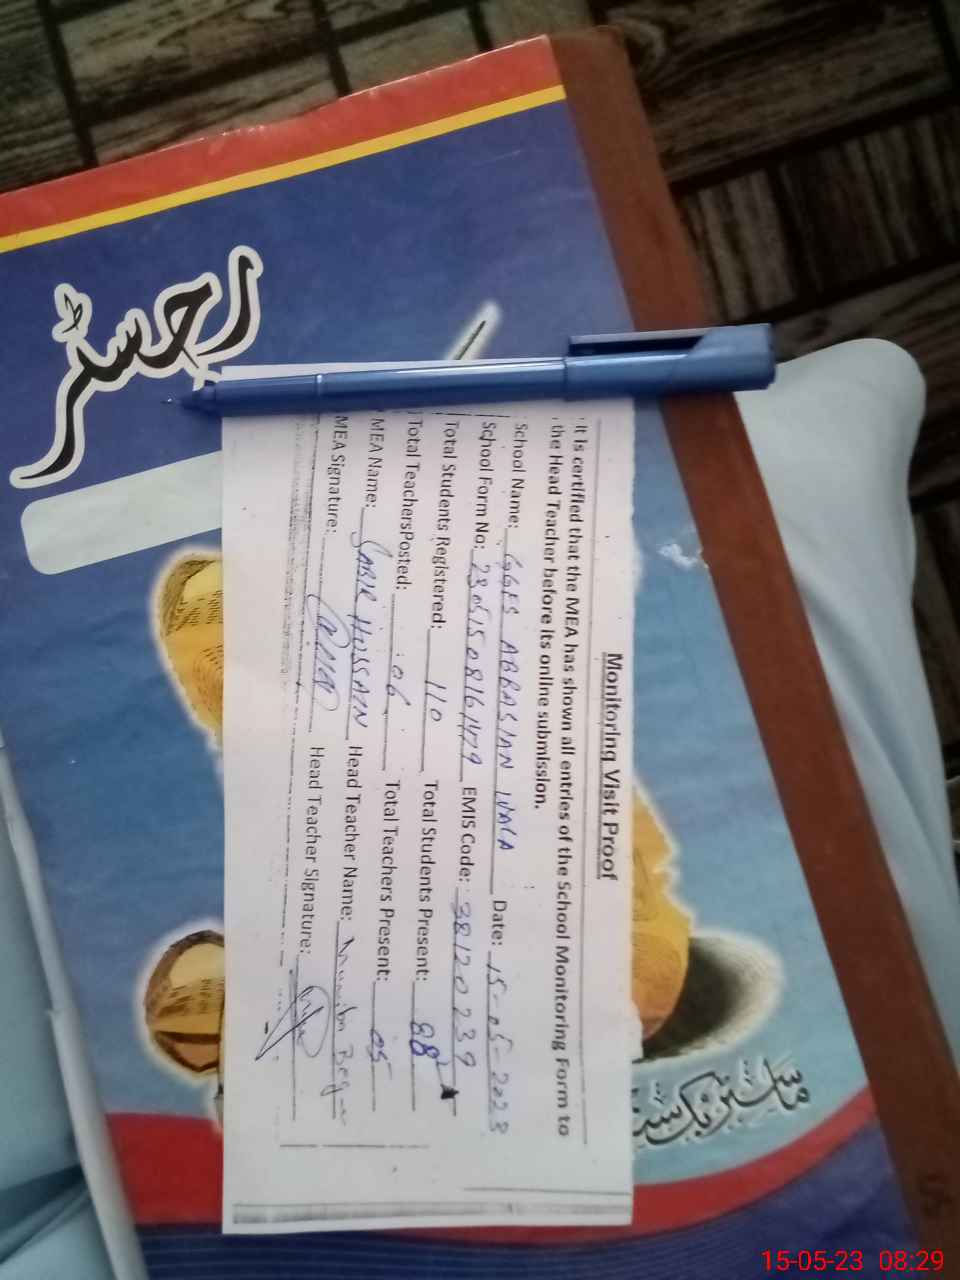 رجسٹر
Monitoring Visit Proof
It is certified that the MEA has shown all entries of the School Monitoring Form to
the Head Teacher before its online submission.
School Name: GGES ABBASIAN WALA Date: 15-05-2023
School Form No: 23051508161479 EMIS Code: 38120239
Total Students Registered: 110 Total Students Present: 88
Total TeachersPosted: 06 Total Teachers Present: 05
MEA Name: SABIR HUSSAIN Head Teacher Name: Begum
MEA Signature: Head Teacher Signature:
15-05-23 08:29